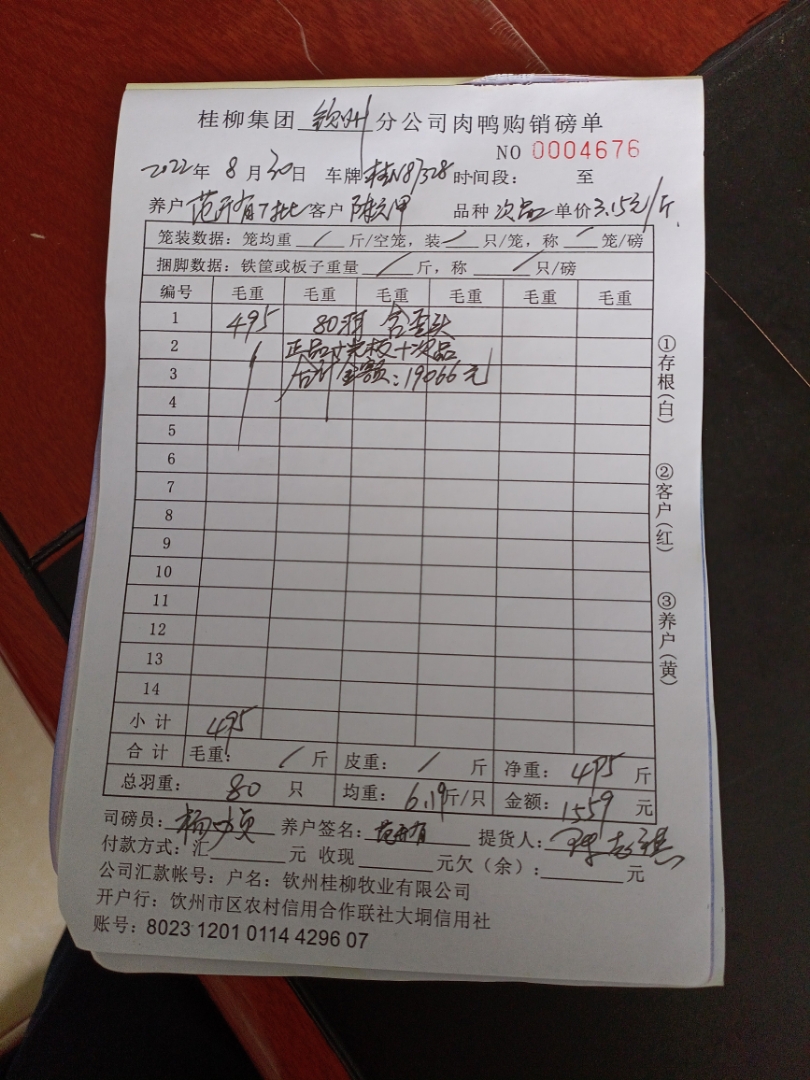 桂柳集团 钦州 分公司肉鸭购销磅单
NO 0004676
2022年 8月30日 车牌 桂N87328 时间段： 至
养户 范开有7批 客户 陈 甲 品种 次品 单价 3.15元/斤.
笼装数据：笼均重 / 斤/空笼，装 / 只/笼，称 / 笼/磅
捆脚数据：铁筐或板子重量 / 斤，称 / 只/磅
编号 毛重 毛重 毛重 毛重 毛重 毛重
1 495 80羽 含歪头
2 正品+光板+次品
3 合计金额：19066元
4
5
6
7
8
9
10
11
12
13
14
小计 495
合计 毛重： / 斤 皮重： / 斤 净重： 495 斤
总羽重： 80 只 均重： 6.19斤/只 金额： 1559 元
司磅员： 养户签名： 范开有 提货人：
付款方式：汇 元 收现 元欠（余）： 元
公司汇款帐号：户名：钦州桂柳牧业有限公司
开户行：钦州市区农村信用合作联社大垌信用社
账号：8023 1201 0114 4296 07
①存根（白）
②客户（红）
③养户（黄）